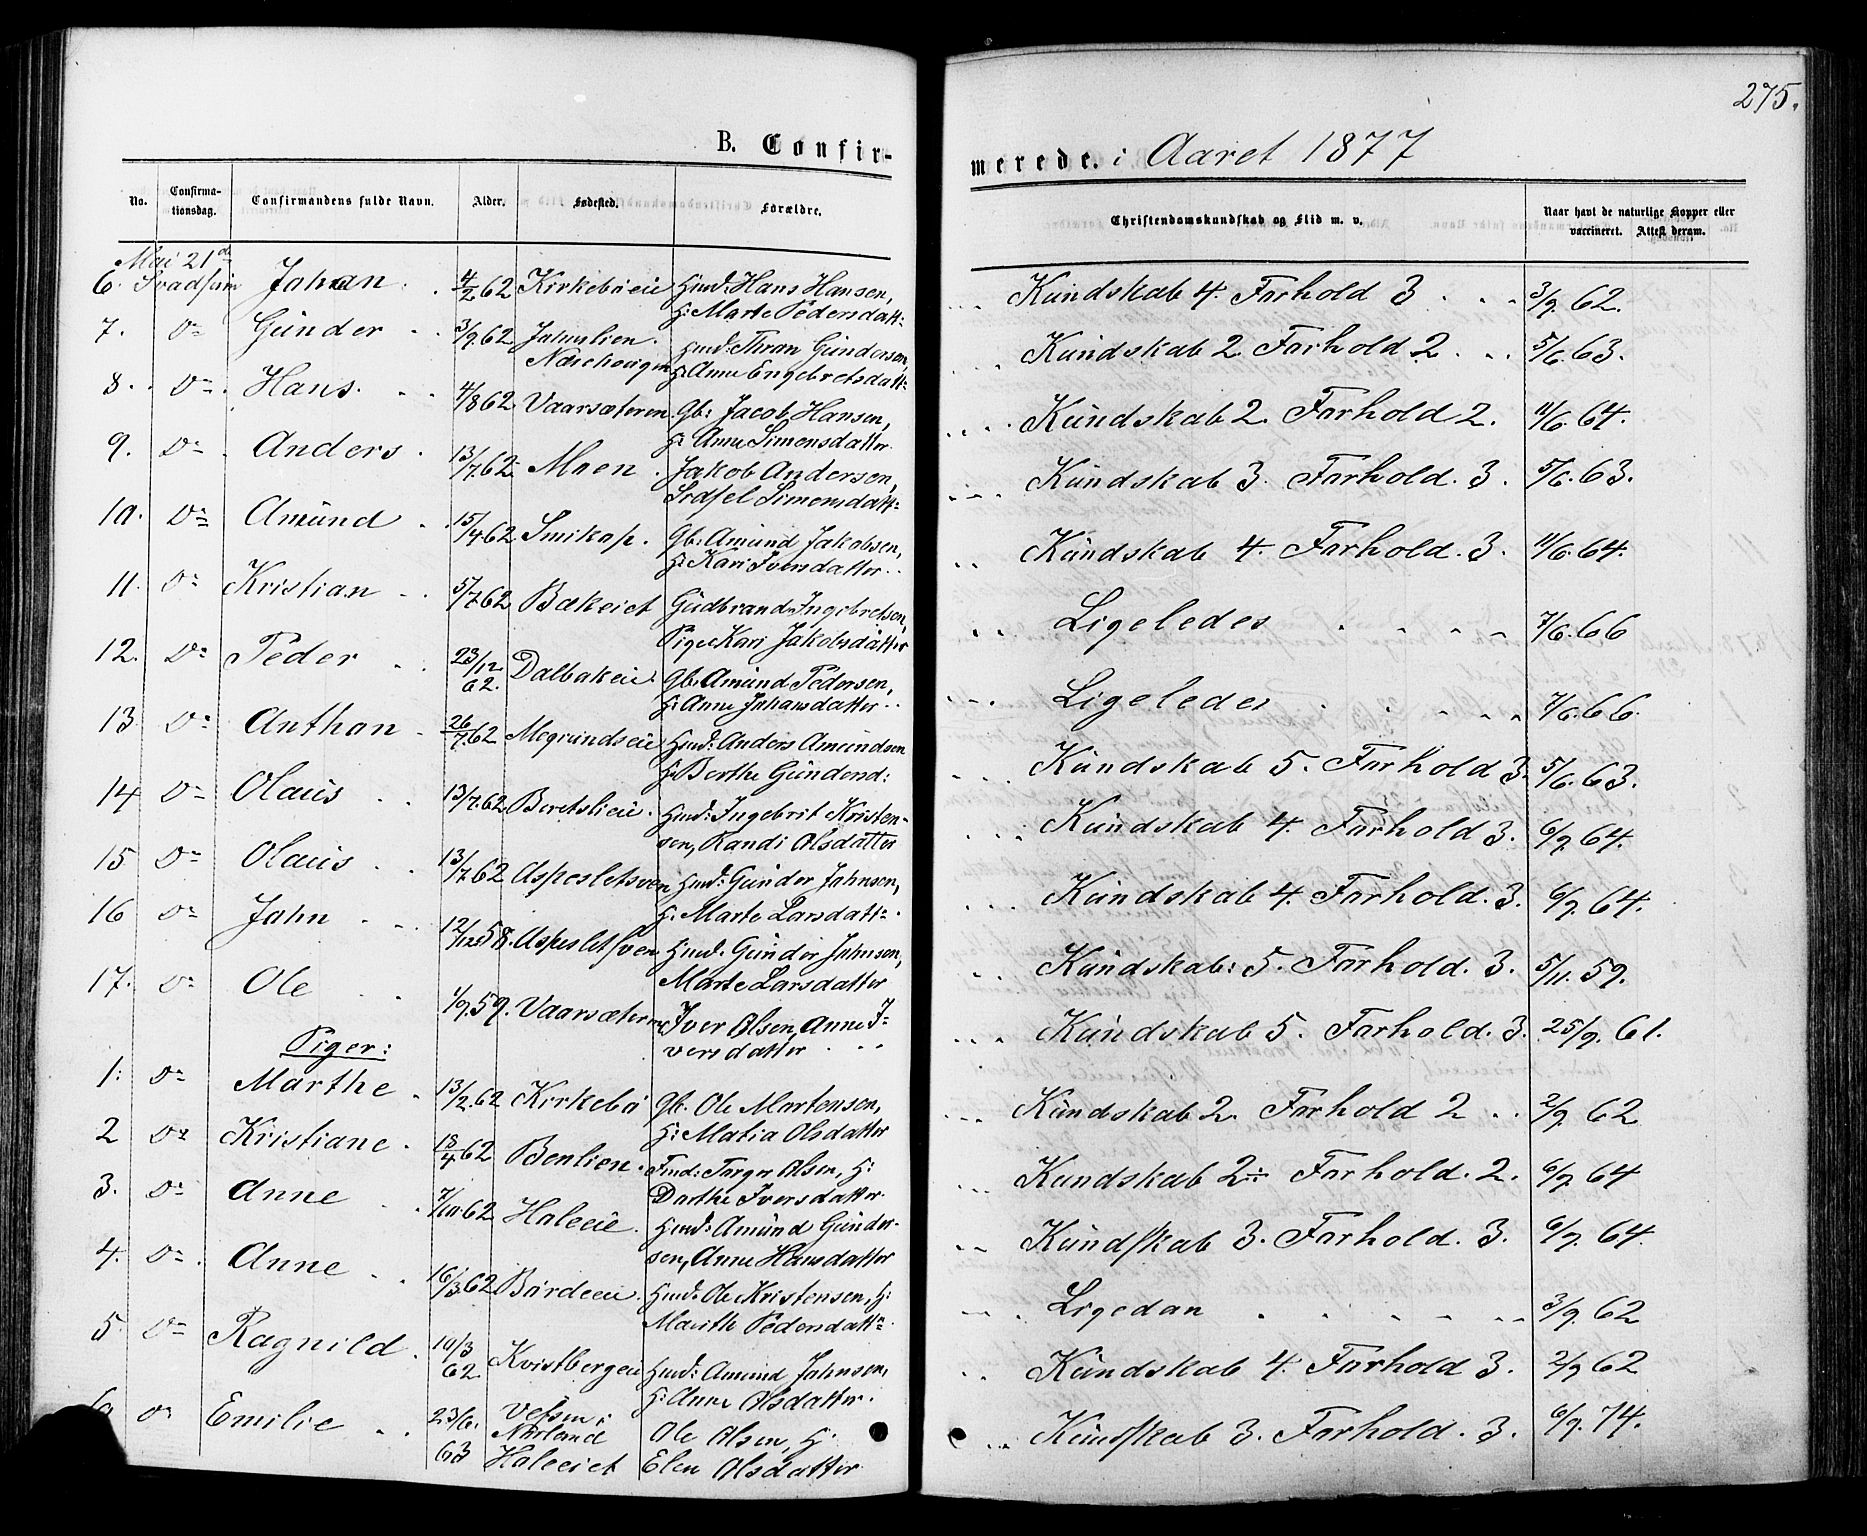 275.
B. Confir-
merede. i Aaret 1877
No. Confirma-tionsdag. Confirmandens fulde Navn. Alder. Fødested. Forældre. Christendomskundskab og Flid m. v. Naar havt de naturlige Kopper eller vaccineret. Attest derom.
Mai 21de
6. Svadsum Johan 4/2 62 Kirkebøeie Hmd: Hans Hansen, Kundskab 4. Forhold 3 3/9. 62.
H: Marte Pedersdatt:
7. Do Gunder 3/9 62 Jammlien Hmd: Thran Gundersen, Kundskab 2. Forhold 2 5/6. 63.
H: Anne Engebretsdatt:
8. Do Hans. 4/8 62 Vaarsæteren Gb: Jacob Hansen, Kundskab 2. Forhold 2. 11/6. 64.
H: Anne Simensdatter
9. Do Anders 13/7. 62 Moen Jakob Andersen, Kundskab 3. Forhold. 3. 5/6. 63.
Sidsel Simensdatt:
10. Do Amund 15/4 62 Smikop. Gb. Amund Jakobsen, Kundskab 4. Forhold. 3. 11/6. 64.
H: Kari Iversdatter
11. Do Kristian 5/7 62 Bækeiet Gudbrand Ingebretsen, Ligeledes 7/6. 66
Pige Kari Jakobsdatter
12. Do Peder 23/12 62. Dalbakeie Gb. Amund Pedersen, Ligeledes 7/6. 66.
H: Anne Johansdatter
13. Do Anthon 26/7 62 Megrundseie Hmd: Anders Amundsen Kundskab 5. Forhold 3. 5/6. 63.
H: Berthe Gundersd:
14 Do Olaus 13/7. 62 Beretslieie. Hmd: Ingebrit Kristen- Kundskab 4. Forhold 3. 6/9. 64.
sen, Randi Olsdatter
15 Do Olaus 13/7 62 Aspesletsveen Hmd: Gunder Johnsen, Kundskab 4. Forhold. 3. 6/9. 64.
H. Marte Larsdatt:
16 Do John 12/12 58. Aspesletsveen Hmd. Gunder Johnsen, Kundskab: 5. Forhold. 3. 5/11. 59.
Marte Larsdatter
17. Do Ole 1/9. 59. Vaarsæteren Iver Olsen, Anne I- Kundskab 5. Forhold. 3. 25/9. 61.
versdatter
Piger:
1: Do Marthe 13/2. 62 Kirkebø Gb. Ole Mortensen, Kundskab 2. Forhold 2 2/9. 62
H: Matia Olsdatter
2 Do Kristiane 18/4 62 Benlien Fmd: Torger Olsen, H: Kundskab 2 Forhold. 2. 6/9. 64
Dorthe Iversdatter
3. Do Anne 7/10 62 Haleeie. Hmd: Amund Gunder- Kundskab 3. Forhold. 3. 6/9. 64.
sen, Anne Hansdatter
4. Do Anne 16/3 62 Bordeeie. Hmd: Ole Kristensen, H: Ligedan 3/9. 62
Marith Pedersdatt:
5. Do Ragnild 10/3 62. Kvistbergeie Hmd: Amund Johnsen, Kundskab 4. Forhold 3. 2/9 62
H: Anne Olsdatter
6 Do Emilie 23/6. 63 Vefsen i Nørland Haleeiet Ole Olsen, H: Kundskab 3. Forhold. 3. 6/9. 74.
Elen Olsdatter